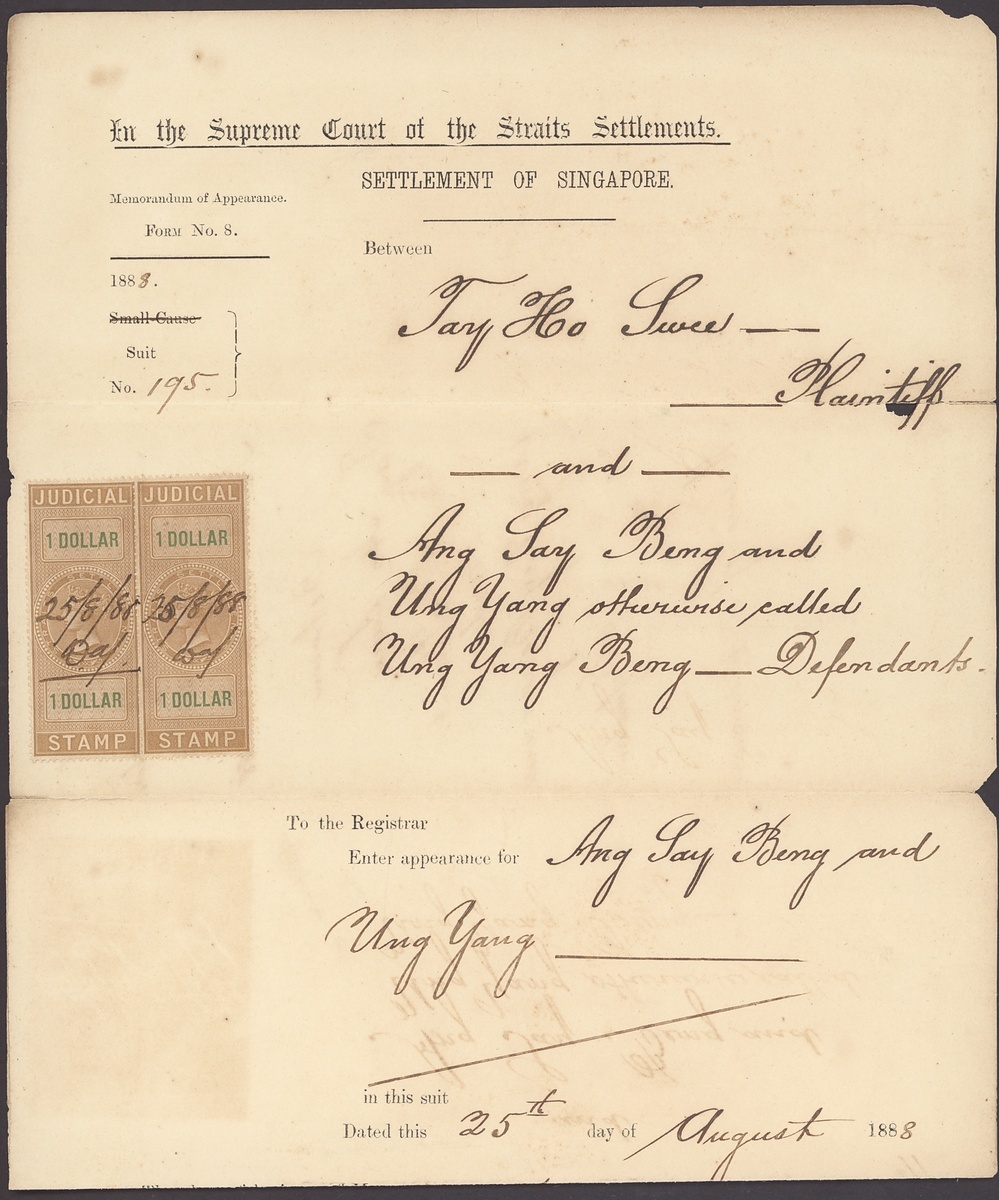 In the Supreme Court of the Straits Settlements.
SETTLEMENT OF SINGAPORE.
Memorandum of Appearance.
FORM No. 8.
Between
1888.
Small Cause
Suit
No. 195.
Tay Ho Swee —
Plaintiff
— and —
Ang Say Beng and
Ung Yang otherwise called
Ung Yang Beng — Defendants.
JUDICIAL JUDICIAL
1 DOLLAR 1 DOLLAR
25/8/88 25/8/88
1 DOLLAR 1 DOLLAR
STAMP STAMP
To the Registrar
Enter appearance for Ang Say Beng and
Ung Yang
in this suit
Dated this 25th day of August 1888